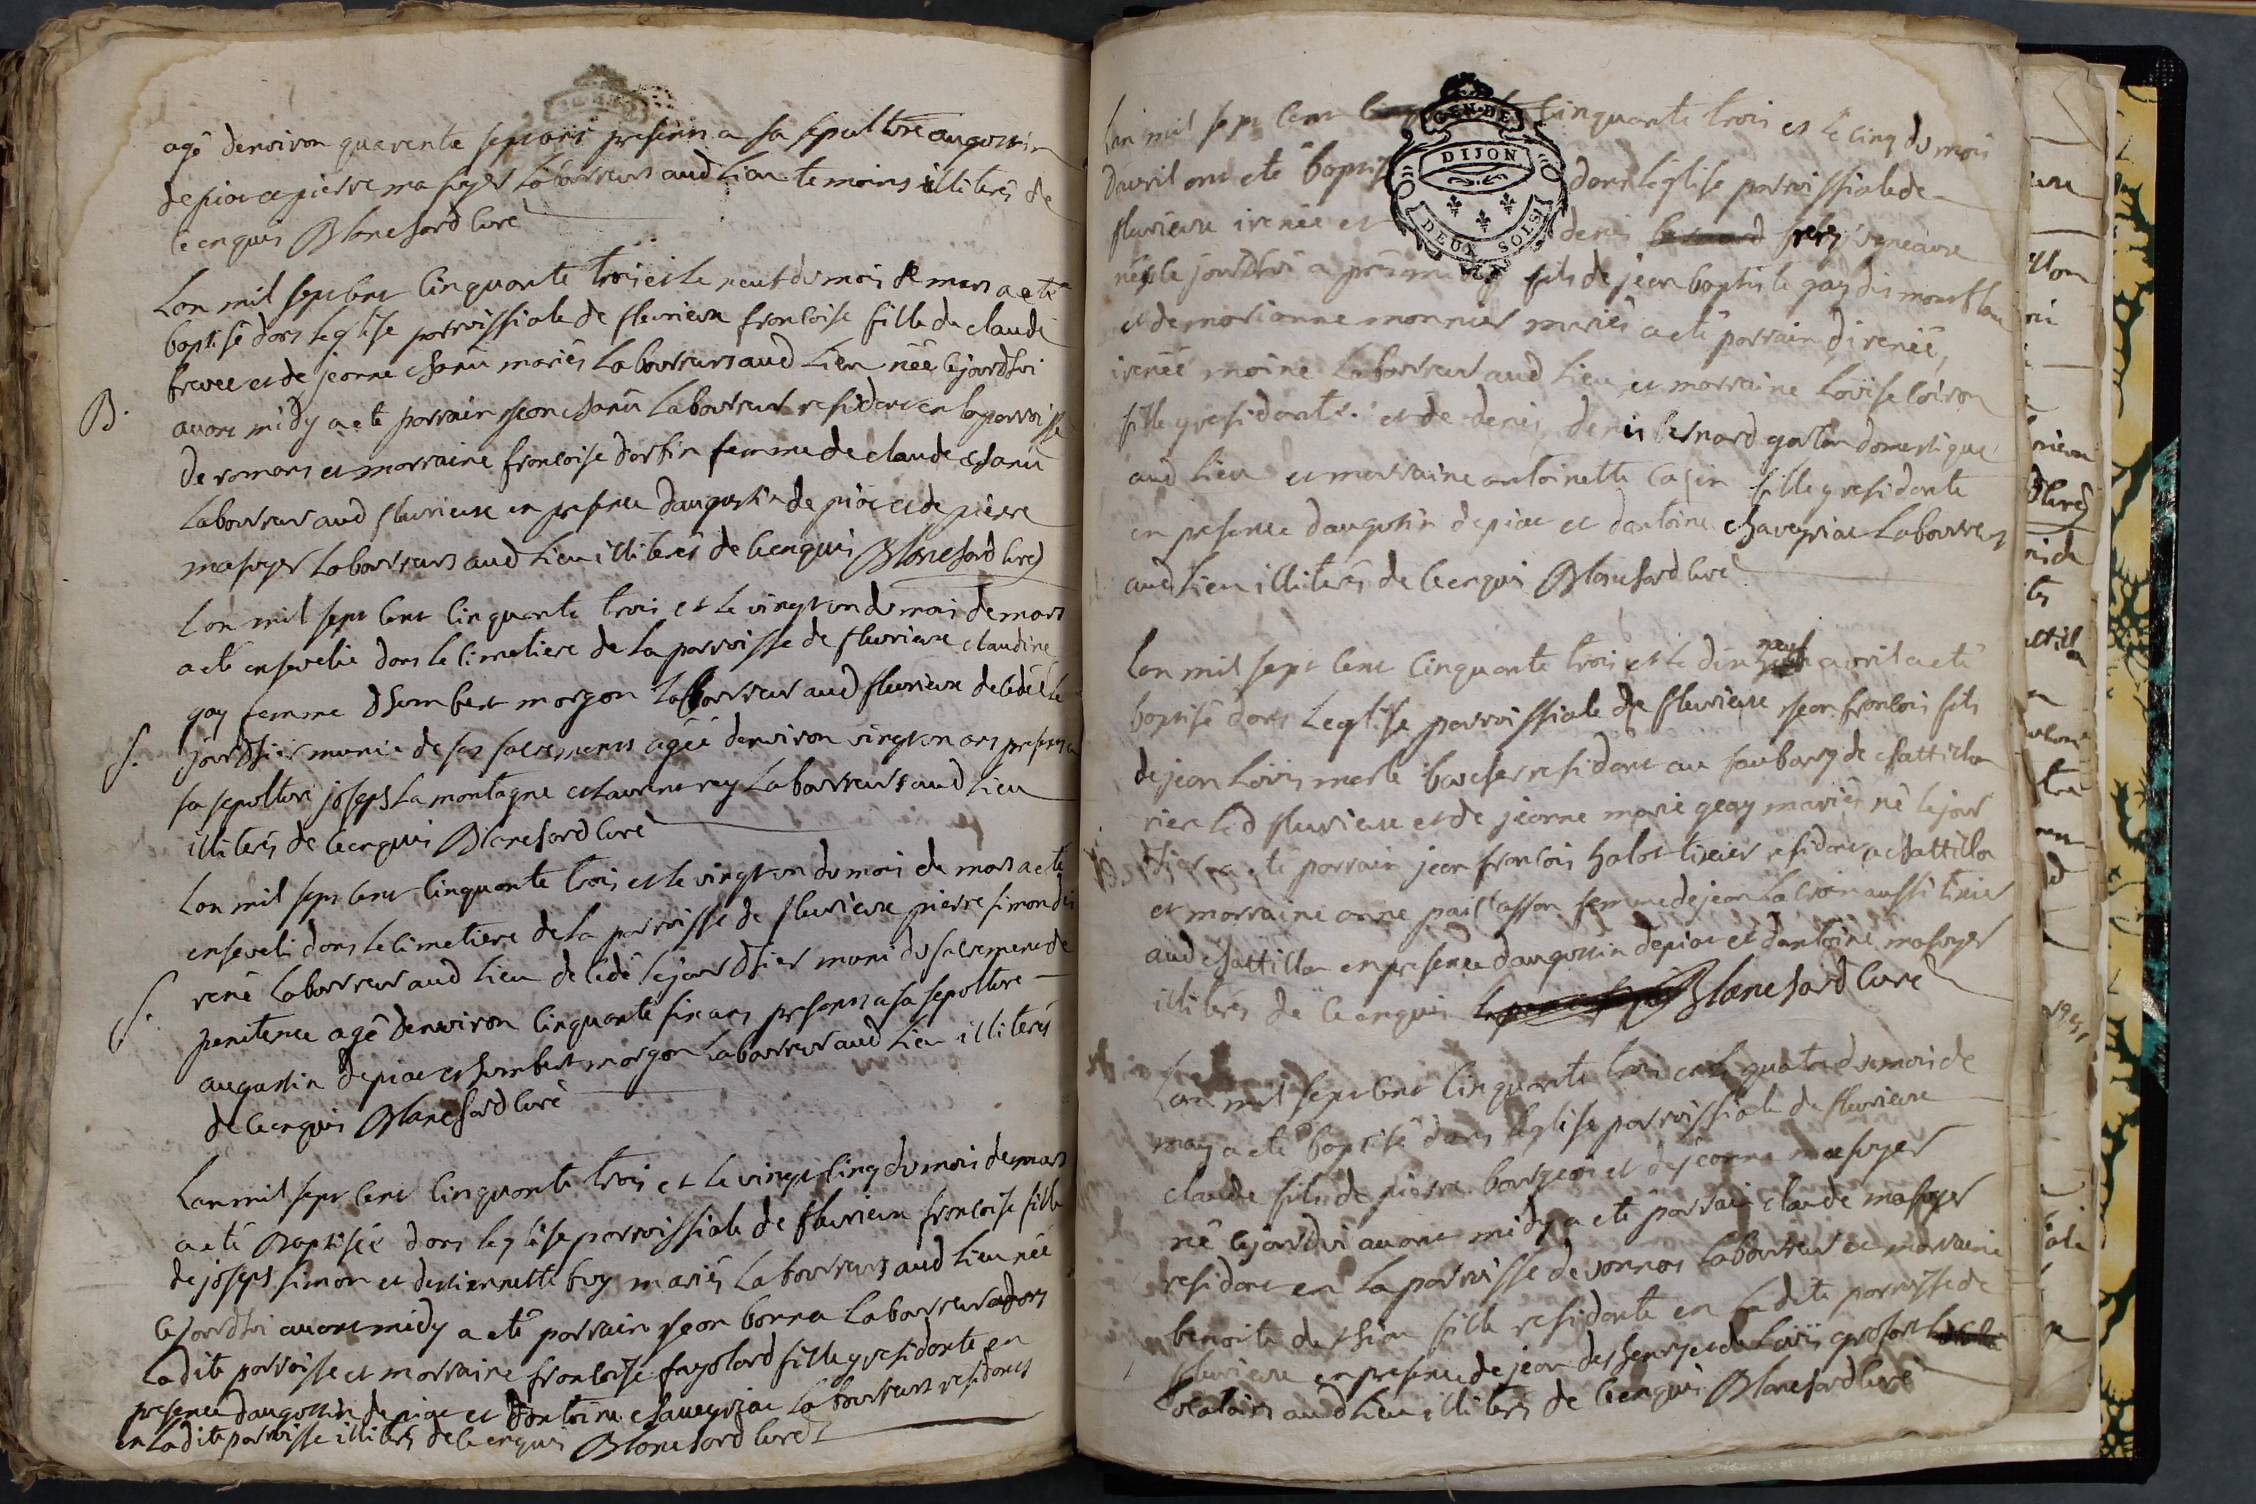 agé denviron quarente sept ans presens a sa sepulture augustin
depiac et pierre masuyer laboureurs aud lieu temoins illiterés de
ce enquis Blanchard curé
Lan mil sept cent cinquante trois et le neuf du mois de mars a eté
baptisé dans leglise parroissiale de fleurieux francoise fille de claude
brevet et de jeanne chanu mariés laboureurs aud lieu née ce jourdhui
B.
avant midy a eté parrain jean chanu laboureur resident en la parroisse
de romans et marraine francoise dorbin femme de claude chanu
laboureur aud fleurieux en presence daugustin de piac et de pierre
masuyer laboureurs aud lieu illiterés de ce enquis Blanchard curé
Lan mil sept cent cinquante trois et le vingt un du mois de mars
a eté ensevelie dans le cimetiere de la parroisse de fleurieux claudine
gay femme dhumbert morgon laboureur aud fleurieux decedée le
S.
jourdhier munie de ses sacremens agée denviron vingt un ans presens a
sa sepolture joseph la montagne et laurent rey laboureurs aud lieu
illiterés de ce enquis Blanchard curé
Lan mil sept cent cinquante trois et le vingt un du mois de mars a eté
enseveli dans le cimetiere de la parroisse de fleurieux pierre simon dit
S.
rené laboureur aud lieu decedé le jourdhier muni du sacrement de
penitence agé denviron cinquante six ans presens a sa sepolture
augustin depiac et humbert morgon laboureur aud lieu illiterés
de ce enquis Blanchard curé
Lan mil sept cent cinquante trois et le vingt cinq du mois de mars
a eté Baptisée dans leglise parroissiale de fleurieux francoise fille
de joseph simon et destiennette buy mariés laboureurs aud lieu née
ce jourdhui avant midy a eté parrain jean bonna laboureur dans
ladite parroisse et marraine francoise fagolard fille y residante en
presence daugustin depiac et dantoine chaveyriac laboureurs residents
en ladite parroisse illiterés de ce enquis Blanchard curé
GEN. DE
DIJON
DEUX SOLS
Lan mil sept cent cinquante trois et le cinq du mois
davril ont eté baptisés dans leglise parroissiale de
fleurieux irenée et denis bernard freres jumeaux
nés le jourdhui a fils de jean baptiste gay dit
et de marianne monnier mariés a eté parrain direnée,
irenée moine laboureur aud lieu et marraine Louise loiron
fille y residante. et de denis, denis bernard garcon domestique
aud lieu et marraine antoinette cagin fille y residante
en presence daugustin depiac et dantoine chaveyriac laboureurs
aud lieu illiterés de ce enquis Blanchard curé
Lan mil sept cent cinquante trois et le dix neuf avril a eté
baptisé dans Leglise parroissiale de fleurieux jean francois fils
de jean Louis merle boucher resident au faubourg de chattillon
riere led fleurieux et de jeanne marie geay mariés né le jour
dhier a eté parrain jean francois halot tixier resident a chattillon
et marraine anne paillasson femme de jean lacroix aussi tixier
aud chattillon en presence daugustin depiac et dantoine masuyer
illiterés de ce enquis Blanchard curé
Lan mil sept cent cinquante trois et le quatre du mois de
may a eté baptisé dans leglise parroissiale de fleurieux
claude fils de pierre bourgeois et de jeanne masuyer
né ce jourdhui avant midy a eté parrain claude masuyer
resident en la parroisse de vonnas laboureur et marraine
benoite fille residante en ladite parroisse de
fleurieux en presence de jean et de Louis
locataires aud lieu illiterés de ce enquis Blanchard curé